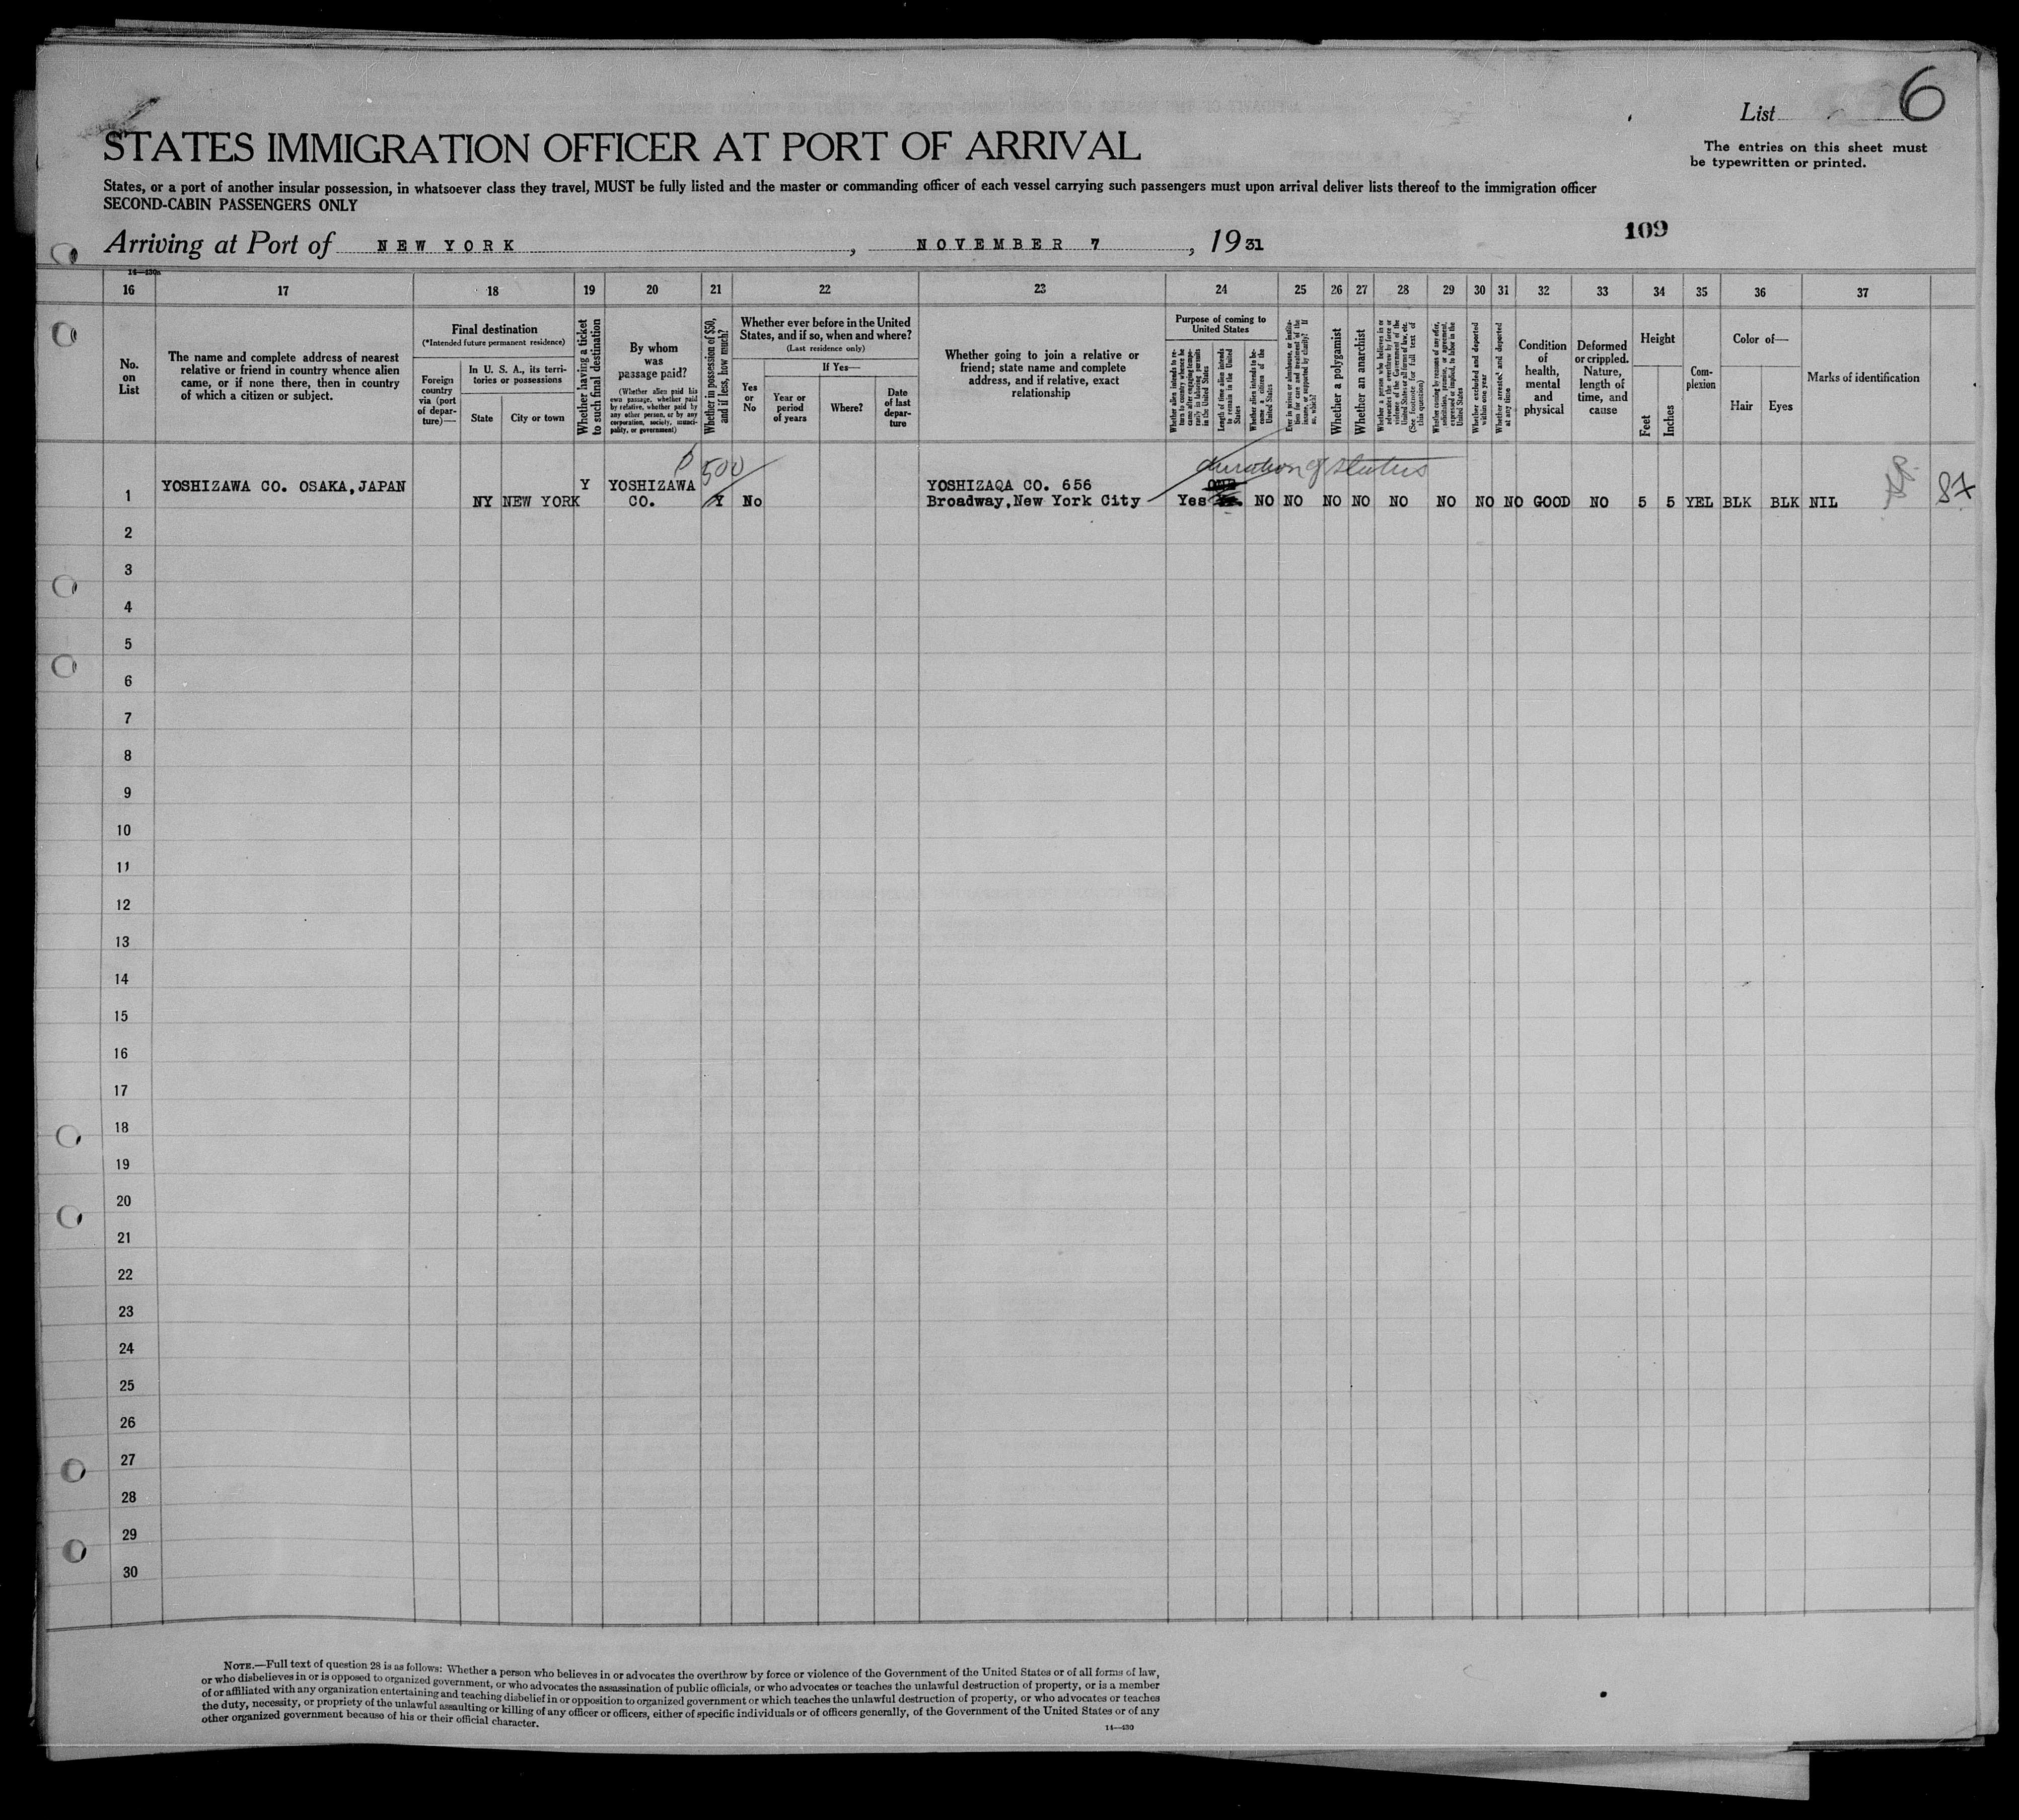 List 6
The entries on this sheet must
be typewritten or printed.
STATES IMMIGRATION OFFICER AT PORT OF ARRIVAL
States, or a port of another insular possession, in whatsoever class they travel, MUST be fully listed and the master or commanding officer of each vessel carrying such passengers must upon arrival deliver lists thereof to the immigration officer
SECOND-CABIN PASSENGERS ONLY
109
Arriving at Port of NEW YORK, NOVEMBER 7, 1931
14—430a
16 17 18 19 20 21 22 23 24 25 26 27 28 29 30 31 32 33 34 35 36 37
No.
on
List
The name and complete address of nearest
relative or friend in country whence alien
came, or if none there, then in country
of which a citizen or subject.
Final destination
(*Intended future permanent residence)
Foreign
country
via (port
of depar-
ture)—
In U. S. A., its terri-
tories or possessions
State
City or town
Whether having a ticket
to such final destination
By whom
was
passage paid?
(Whether alien paid his
own passage, whether paid
by relative, whether paid by
any other person, or by any
corporation, society, munici-
pality, or government)
Whether in possession of $50,
and if less, how much?
Whether ever before in the United
States, and if so, when and where?
(Last residence only)
Yes
or
No
If Yes—
Year or
period
of years
Where?
Date
of last
depar-
ture
Whether going to join a relative or
friend; state name and complete
address, and if relative, exact
relationship
Purpose of coming to
United States
Whether alien intends to re-
turn to country whence he
came after engaging tempo-
rarily in laboring pursuits
in the United States
Length of time alien intends
to remain in the United
States
Whether alien intends to be-
come a citizen of the
United States
Ever in prison or almshouse, or institu-
tion for care and treatment of the
insane, or supported by charity? If
so, which?
Whether a polygamist
Whether an anarchist
Whether a person who believes in or
advocates the overthrow by force or
violence of the Government of the
United States or all forms of law, etc.
(See footnote for full text of
this question)
Whether coming by reasons of any offer,
solicitation, promise, or agreement,
expressed or implied, to labor in the
United States
Whether excluded and deported
within one year
Whether arrested and deported
at any time
Condition
of
health,
mental
and
physical
Deformed
or crippled.
Nature,
length of
time, and
cause
Height
Feet
Inches
Com-
plexion
Color of—
Hair
Eyes
Marks of identification
500
duration of status
YOSHIZAWA CO. OSAKA, JAPAN Y YOSHIZAWA YOSHIZAQA CO. 656
1 NY NEW YORK CO. Y No Broadway, New York City Yes NO NO NO NO NO NO NO NO GOOD NO 5 5 YEL BLK BLK NIL 87
2
3
4
5
6
7
8
9
10
11
12
13
14
15
16
17
18
19
20
21
22
23
24
25
26
27
28
29
30
NOTE.—Full text of question 28 is as follows: Whether a person who believes in or advocates the overthrow by force or violence of the Government of the United States or of all forms of law,
or who disbelieves in or is opposed to organized government, or who advocates the assassination of public officials, or who advocates or teaches the unlawful destruction of property, or is a member
of or affiliated with any organization entertaining and teaching disbelief in or opposition to organized government or which teaches the unlawful destruction of property, or who advocates or teaches
the duty, necessity, or propriety of the unlawful assaulting or killing of any officer or officers, either of specific individuals or of officers generally, of the Government of the United States or of any
other organized government because of his or their official character.
14—430